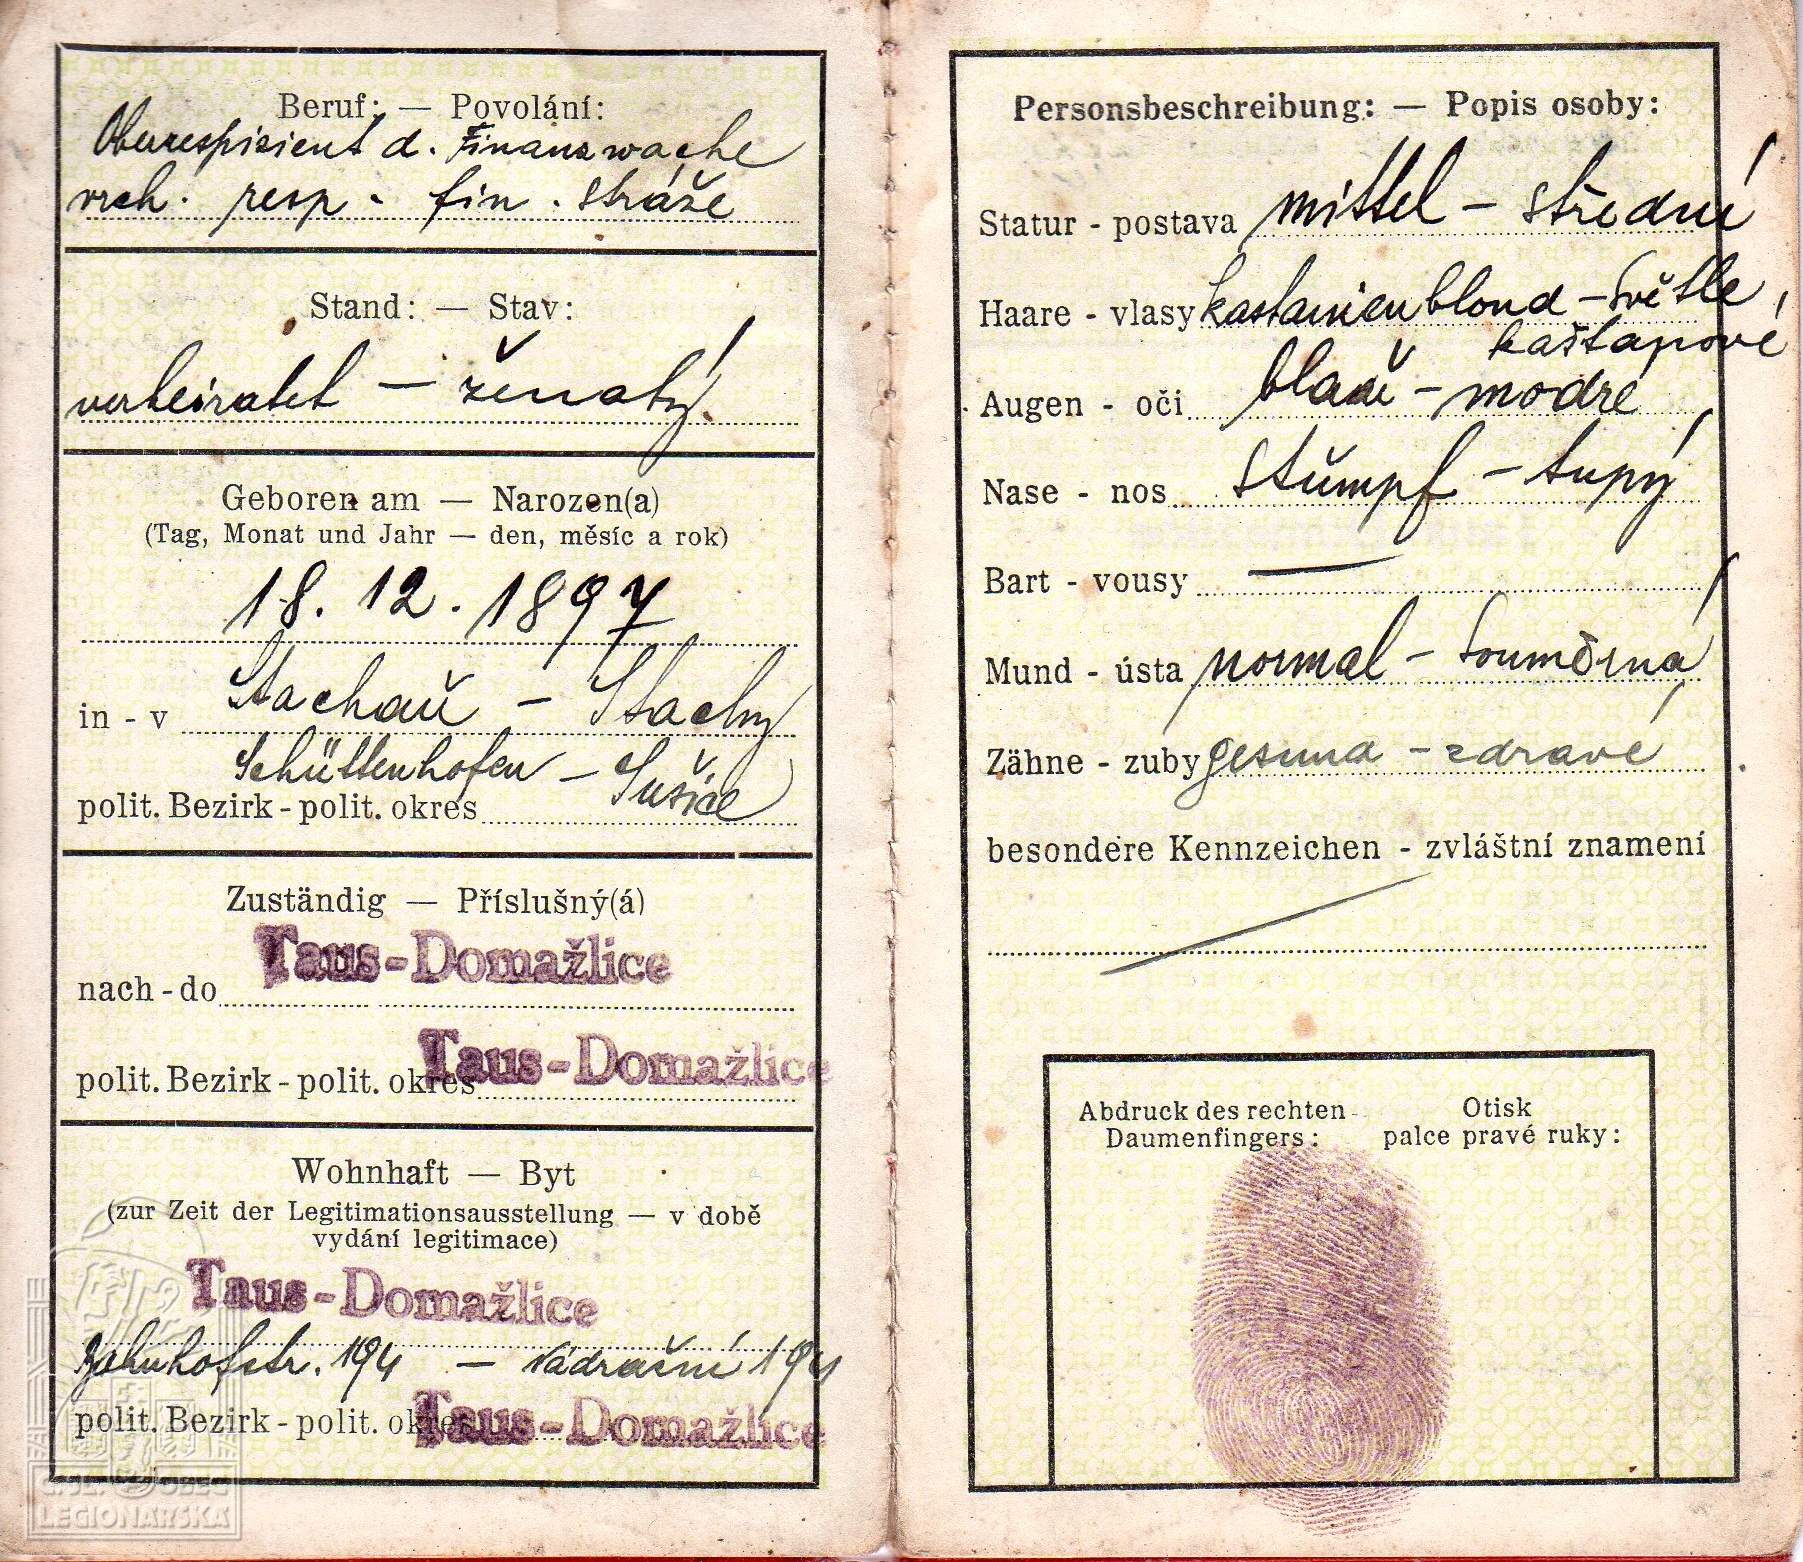 Beruf: — Povolání:
Oberrespizient d. Finanzwache
vrch. resp. fin. stráže
Stand: — Stav:
verheiratet — ženatý.
Geboren am — Narozen(a)
(Tag, Monat und Jahr — den, měsíc a rok)
18. 12. 1897
in - v Stachau — Stachy
Schüttenhofen — Sušice
polit. Bezirk - polit. okres
Zuständig — Příslušný(á)
nach - do Taus-Domažlice
polit. Bezirk - polit. okres Taus-Domažlice
Wohnhaft — Byt
(zur Zeit der Legitimationsausstellung — v době
vydání legitimace)
Taus-Domažlice
Bahnhofstr. 194 — Nádražní 194
polit. Bezirk - polit. okres Taus-Domažlice
Č.SL. OBEC
LEGIONÁŘSKÁ
Personsbeschreibung: — Popis osoby:
Statur - postava mittel — střední
Haare - vlasy kastanienblond — světle
kaštanové
Augen - oči blau — modré
Nase - nos stumpf — tupý
Bart - vousy —
Mund - ústa normal — souměrná
Zähne - zuby gesund — zdravé
besondere Kennzeichen - zvláštní znamení
Abdruck des rechten Daumenfingers:
Otisk palce pravé ruky: